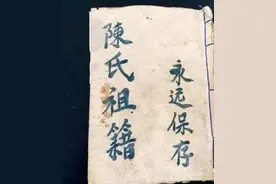 陳氏祖籍
永远保存